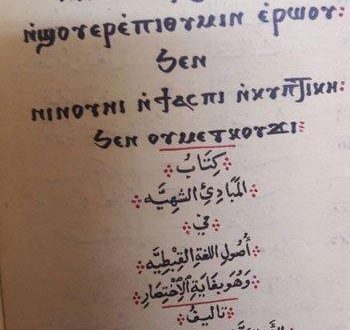 ⲛ̀ϣⲟⲩⲉⲣⲉ̀ⲡⲓⲑⲩⲙⲓⲛ ⲉ̀ⲣⲱⲟⲩ:
ϧⲉⲛ
ⲛⲓⲛⲟⲩⲛⲓ ⲛ̀ϯⲁⲥⲡⲓ ⲛ̀ⲕⲩⲡⲧⲓⲕⲏ:
ϧⲉⲛ ⲟⲩⲙⲉⲧⲕⲟⲩϫⲓ:
كِتَابُ
المَبَادِئِ الشَّهِيَّه
فِي
أُصُولِ اللُّغَةِ القِبْطِيَّه
وَهُوَ بِغَايَةِ الاِخْتِصَارِ
تَالِيفُ